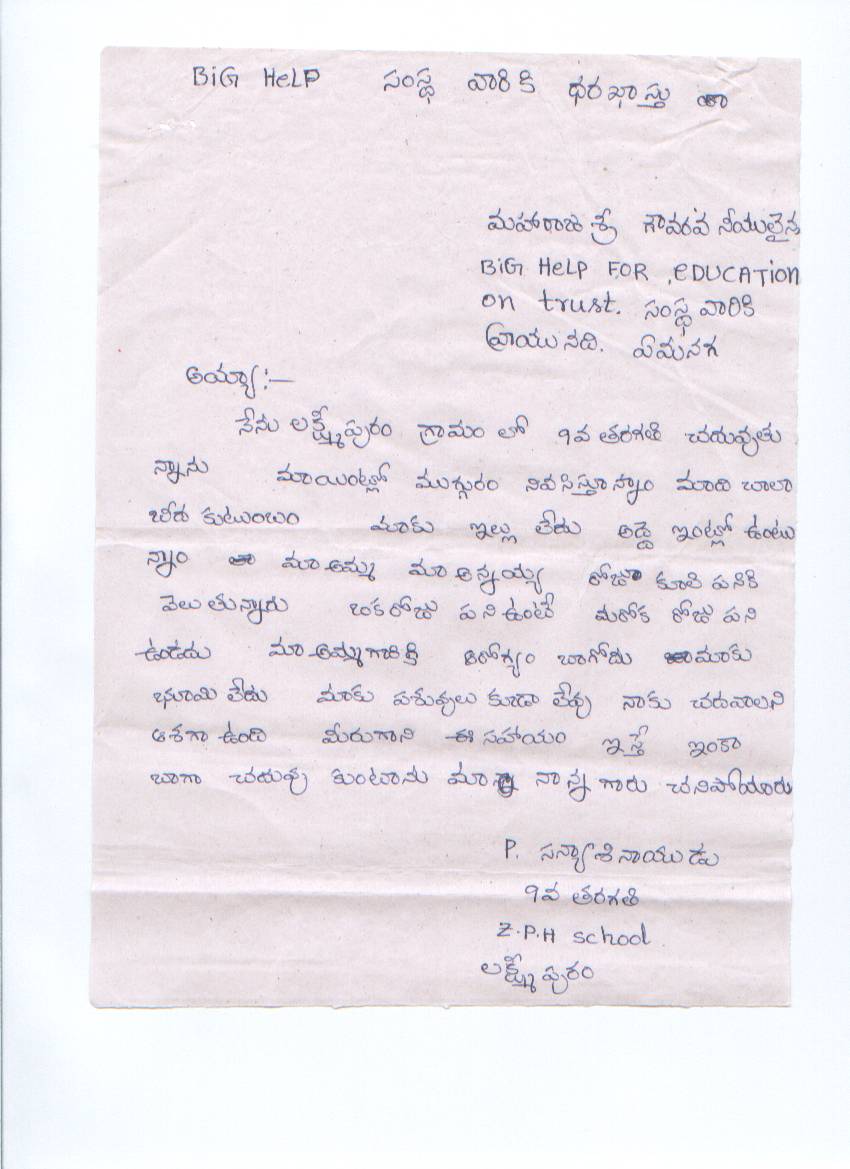 BiG HeLP సంస్థ వారికి ధరఖాస్తు
మహారాజశ్రీ గౌవరవ నీయులైన
BiG HeLP FOR eDUCATiON
on trust. సంస్థ వారికి
వ్రాయునది. ఏమనగ
అయ్యా:-
నేను లక్ష్మీపురం గ్రామం లో 9వ తరగతి చదువుతు
న్నాను మాయింట్లో ముగ్గురం నివసిస్తూన్నాం మాది చాలా
బీద కుటుంబం మాకు ఇల్లు లేదు అద్దె ఇంట్లో ఉంటు
న్నాం మా అమ్మ మా అన్నయ్య రోజు కూలి పనికి
వెలుతున్నారు ఒకరోజు పని ఉంటే మరోక రోజు పని
ఉండదు మా అమ్మగారికి ఆరోగ్యం బాగోదు మాకు
భూమి లేదు మాకు పశువులు కూడా లేవు నాకు చదవాలని
ఆశగా ఉంది మీరుగాని ఈ సహాయం ఇస్తే ఇంకా
బాగా చదువు కుంటాను మా నాన్న గారు చనిపోయారు
P. సన్యాశినాయుడు
9వ తరగతి
Z.P.H school
లక్ష్మీపురం